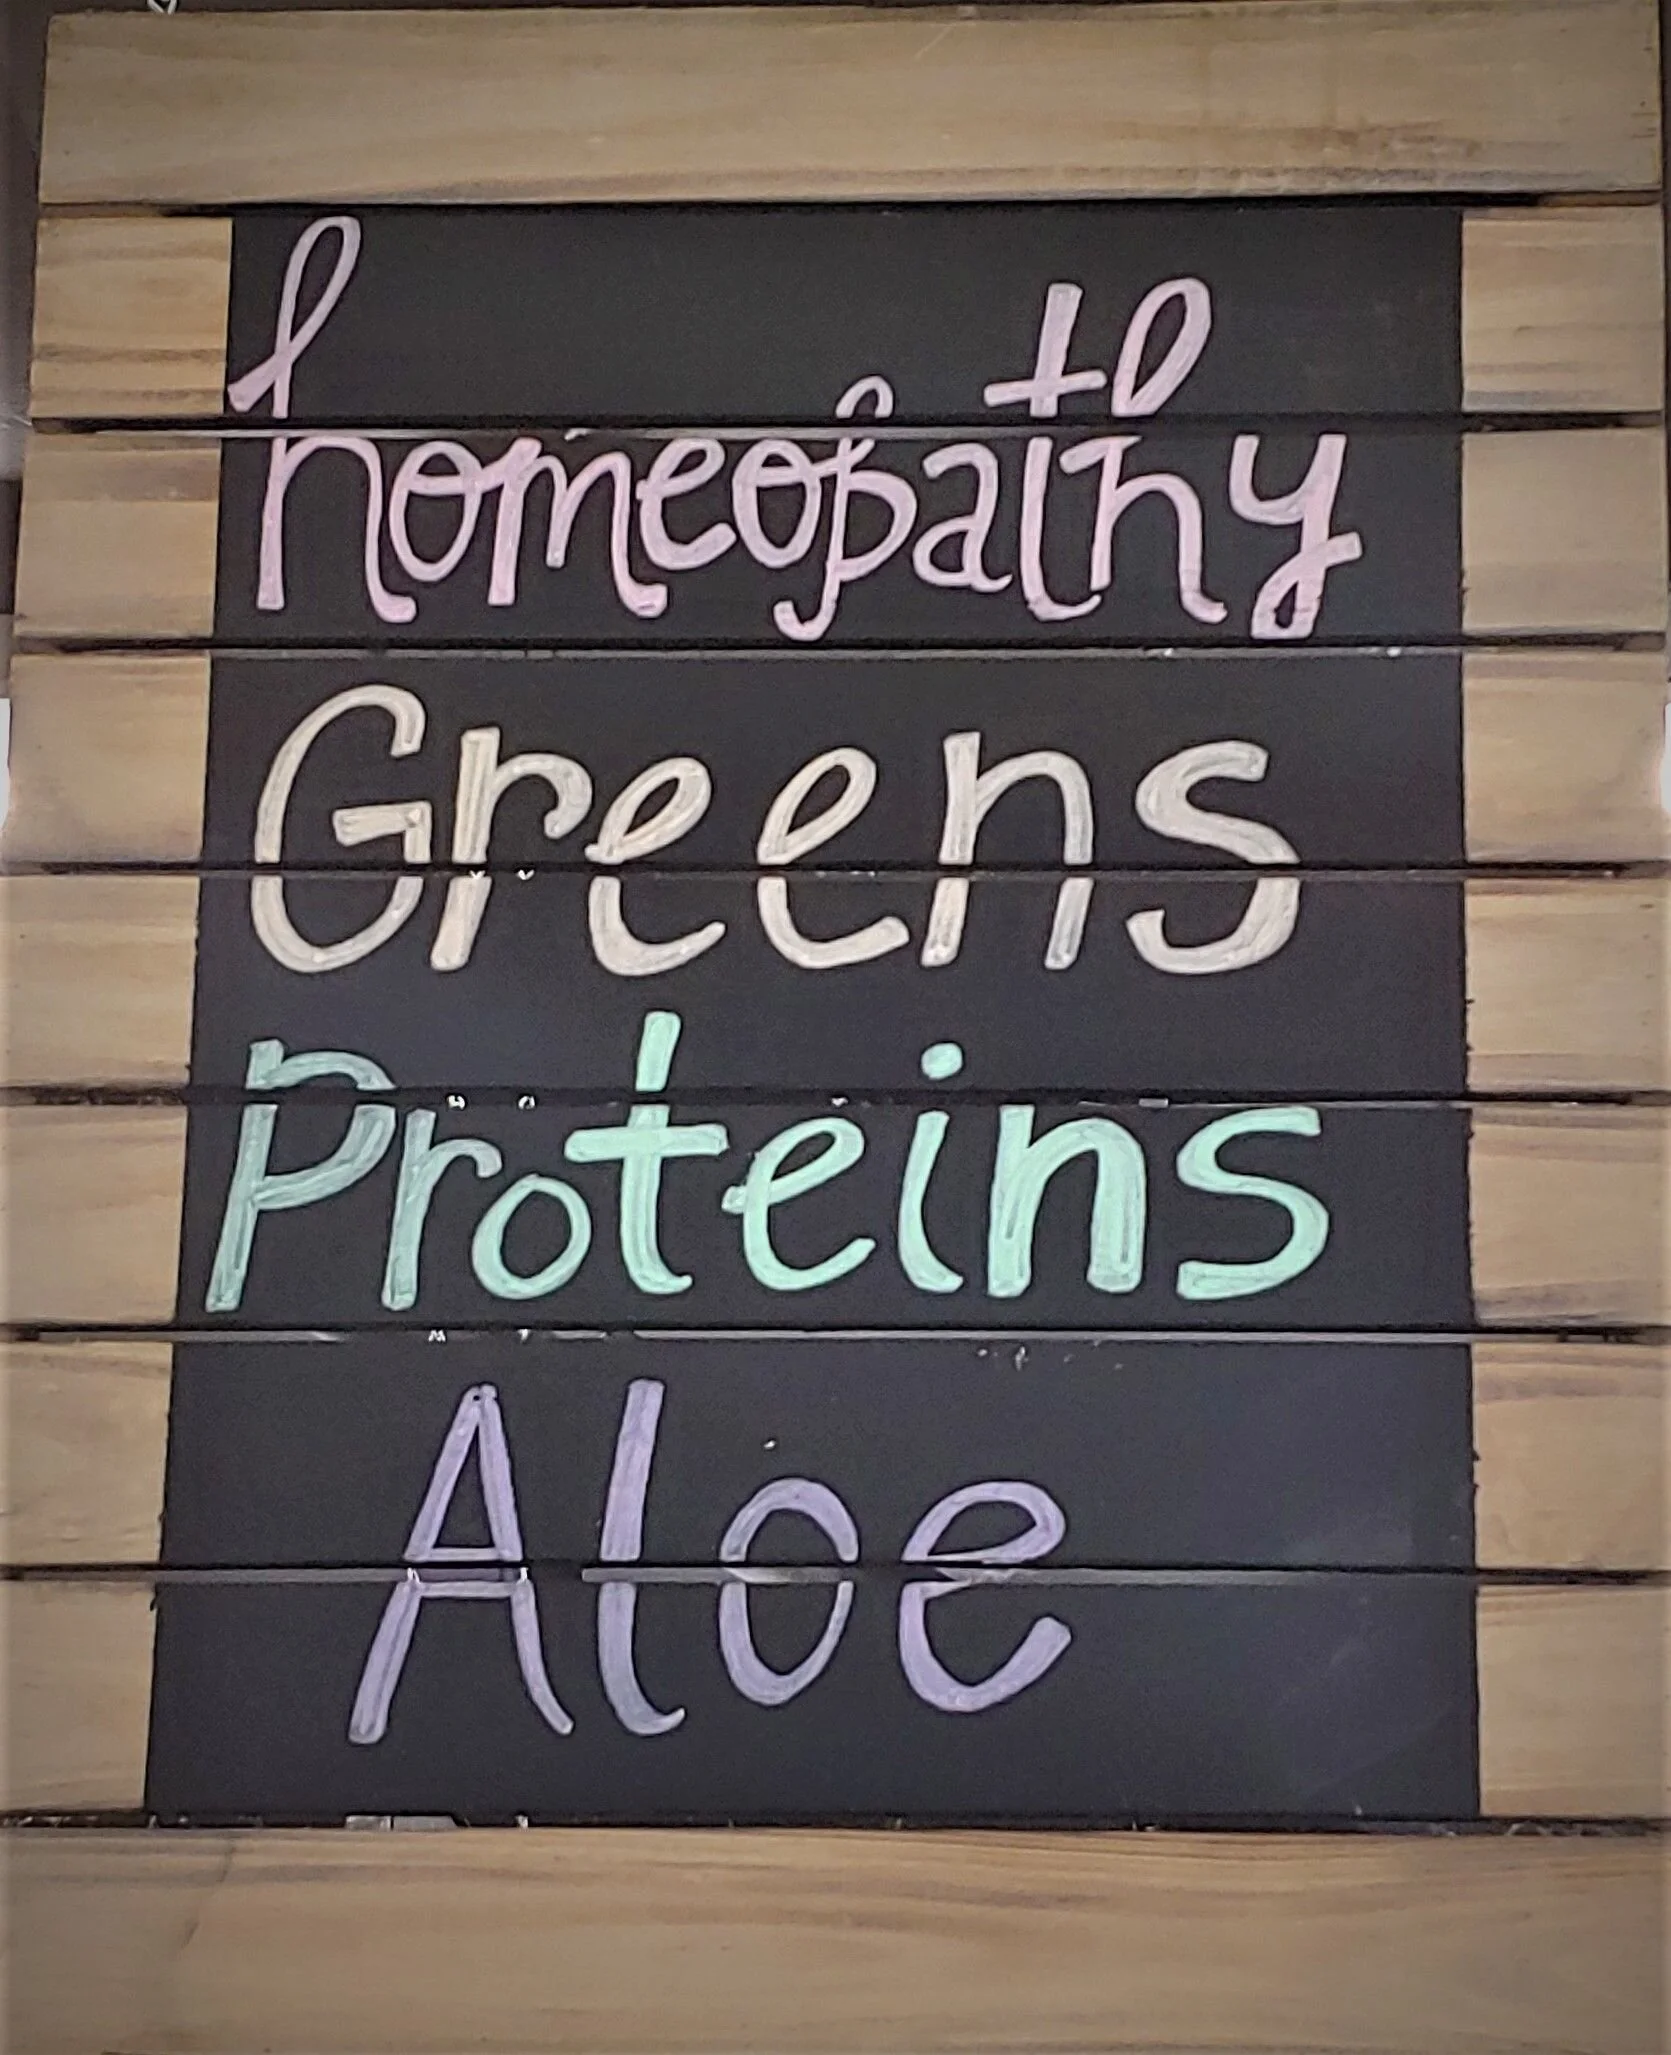 homeopathy
Greens
Proteins
Aloe